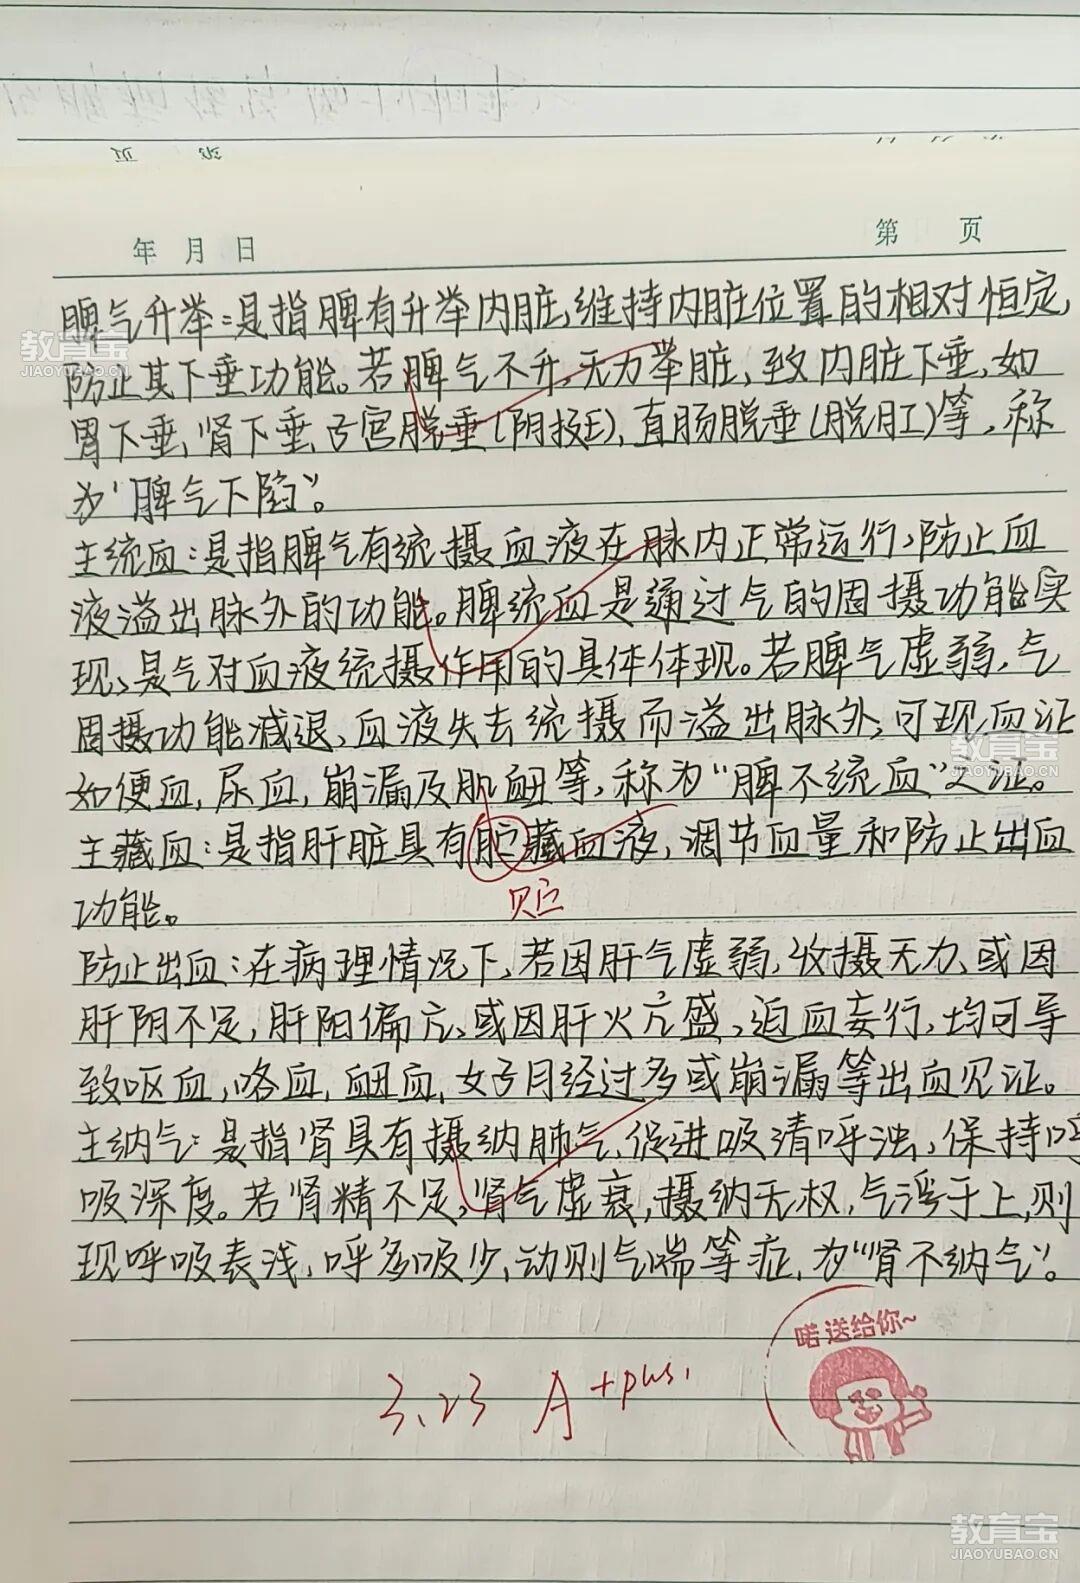 年 月 日 第 页
脾气升举：是指脾有升举内脏，维持内脏位置的相对恒定，
防止其下垂功能。若脾气不升，无力举脏，致内脏下垂，如
胃下垂，肾下垂，子宫脱垂（阴挺），直肠脱垂（脱肛）等，称
为“脾气下陷”。
主统血：是指脾气有统摄血液在脉内正常运行，防止血
液溢出脉外的功能。脾统血是通过气的固摄功能实
现，是气对血液统摄作用的具体体现。若脾气虚弱，气
固摄功能减退，血液失去统摄而溢出脉外，可现血证
如便血，尿血，崩漏及肌衄等，称为“脾不统血”之证。
主藏血：是指肝脏具有贮藏血液，调节血量和防止出血
功能。
贮
防止出血：在病理情况下，若因肝气虚弱，收摄无力，或因
肝阴不足，肝阳偏亢，或因肝火亢盛，迫血妄行，均可导
致呕血，咯血，衄血，女子月经过多或崩漏等出血见证。
主纳气：是指肾具有摄纳肺气，促进吸清呼浊，保持呼
吸深度。若肾精不足，肾气虚衰，摄纳无权，气浮于上，则
现呼吸表浅，呼多吸少，动则气喘等症，为“肾不纳气”。
3.23 A+plus.
喏 送给你~
教育宝
JIAOYUBAO.CN
教育宝
JIAOYUBAO.CN
教育宝
JIAOYUBAO.CN